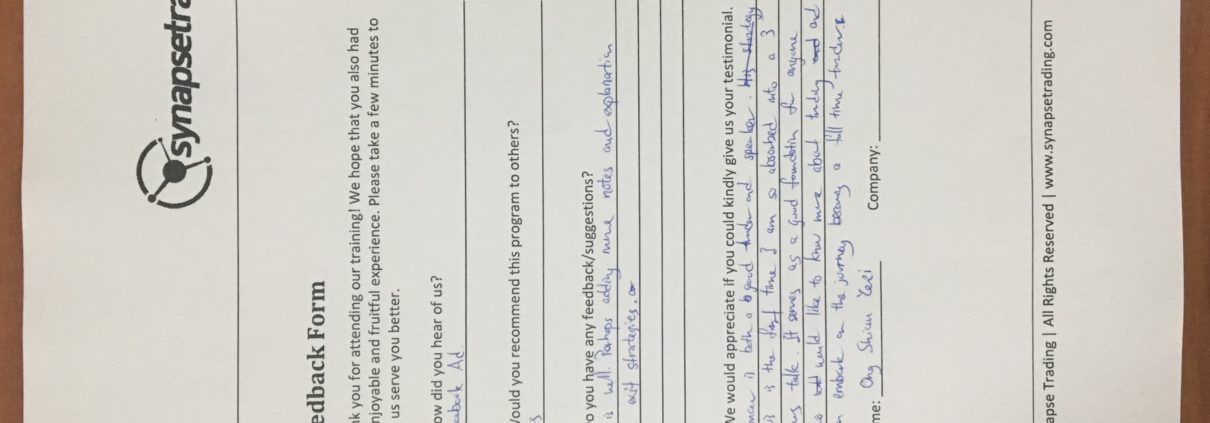 synapsetra
edback Form
nk you for attending our training! We hope that you also had
njoyable and fruitful experience. Please take a few minutes to
us serve you better.
ow did you hear of us?
ebook Ad.
Would you recommend this program to others?
s
o you have any feedback/suggestions?
is well. Perhaps adding more notes and explanation
exit strategies.
We would appreciate if you could kindly give us your testimonial.
encer is both a good trader and speaker. His strategy
is is the first time I am so absorbed into a 3
talk. It serves as a good foundation for anyone
o would like to know more about trading and
embark on the journey becoming a full time trader.
me: Ong Shien Company:
apse Trading | All Rights Reserved | www.synapsetrading.com